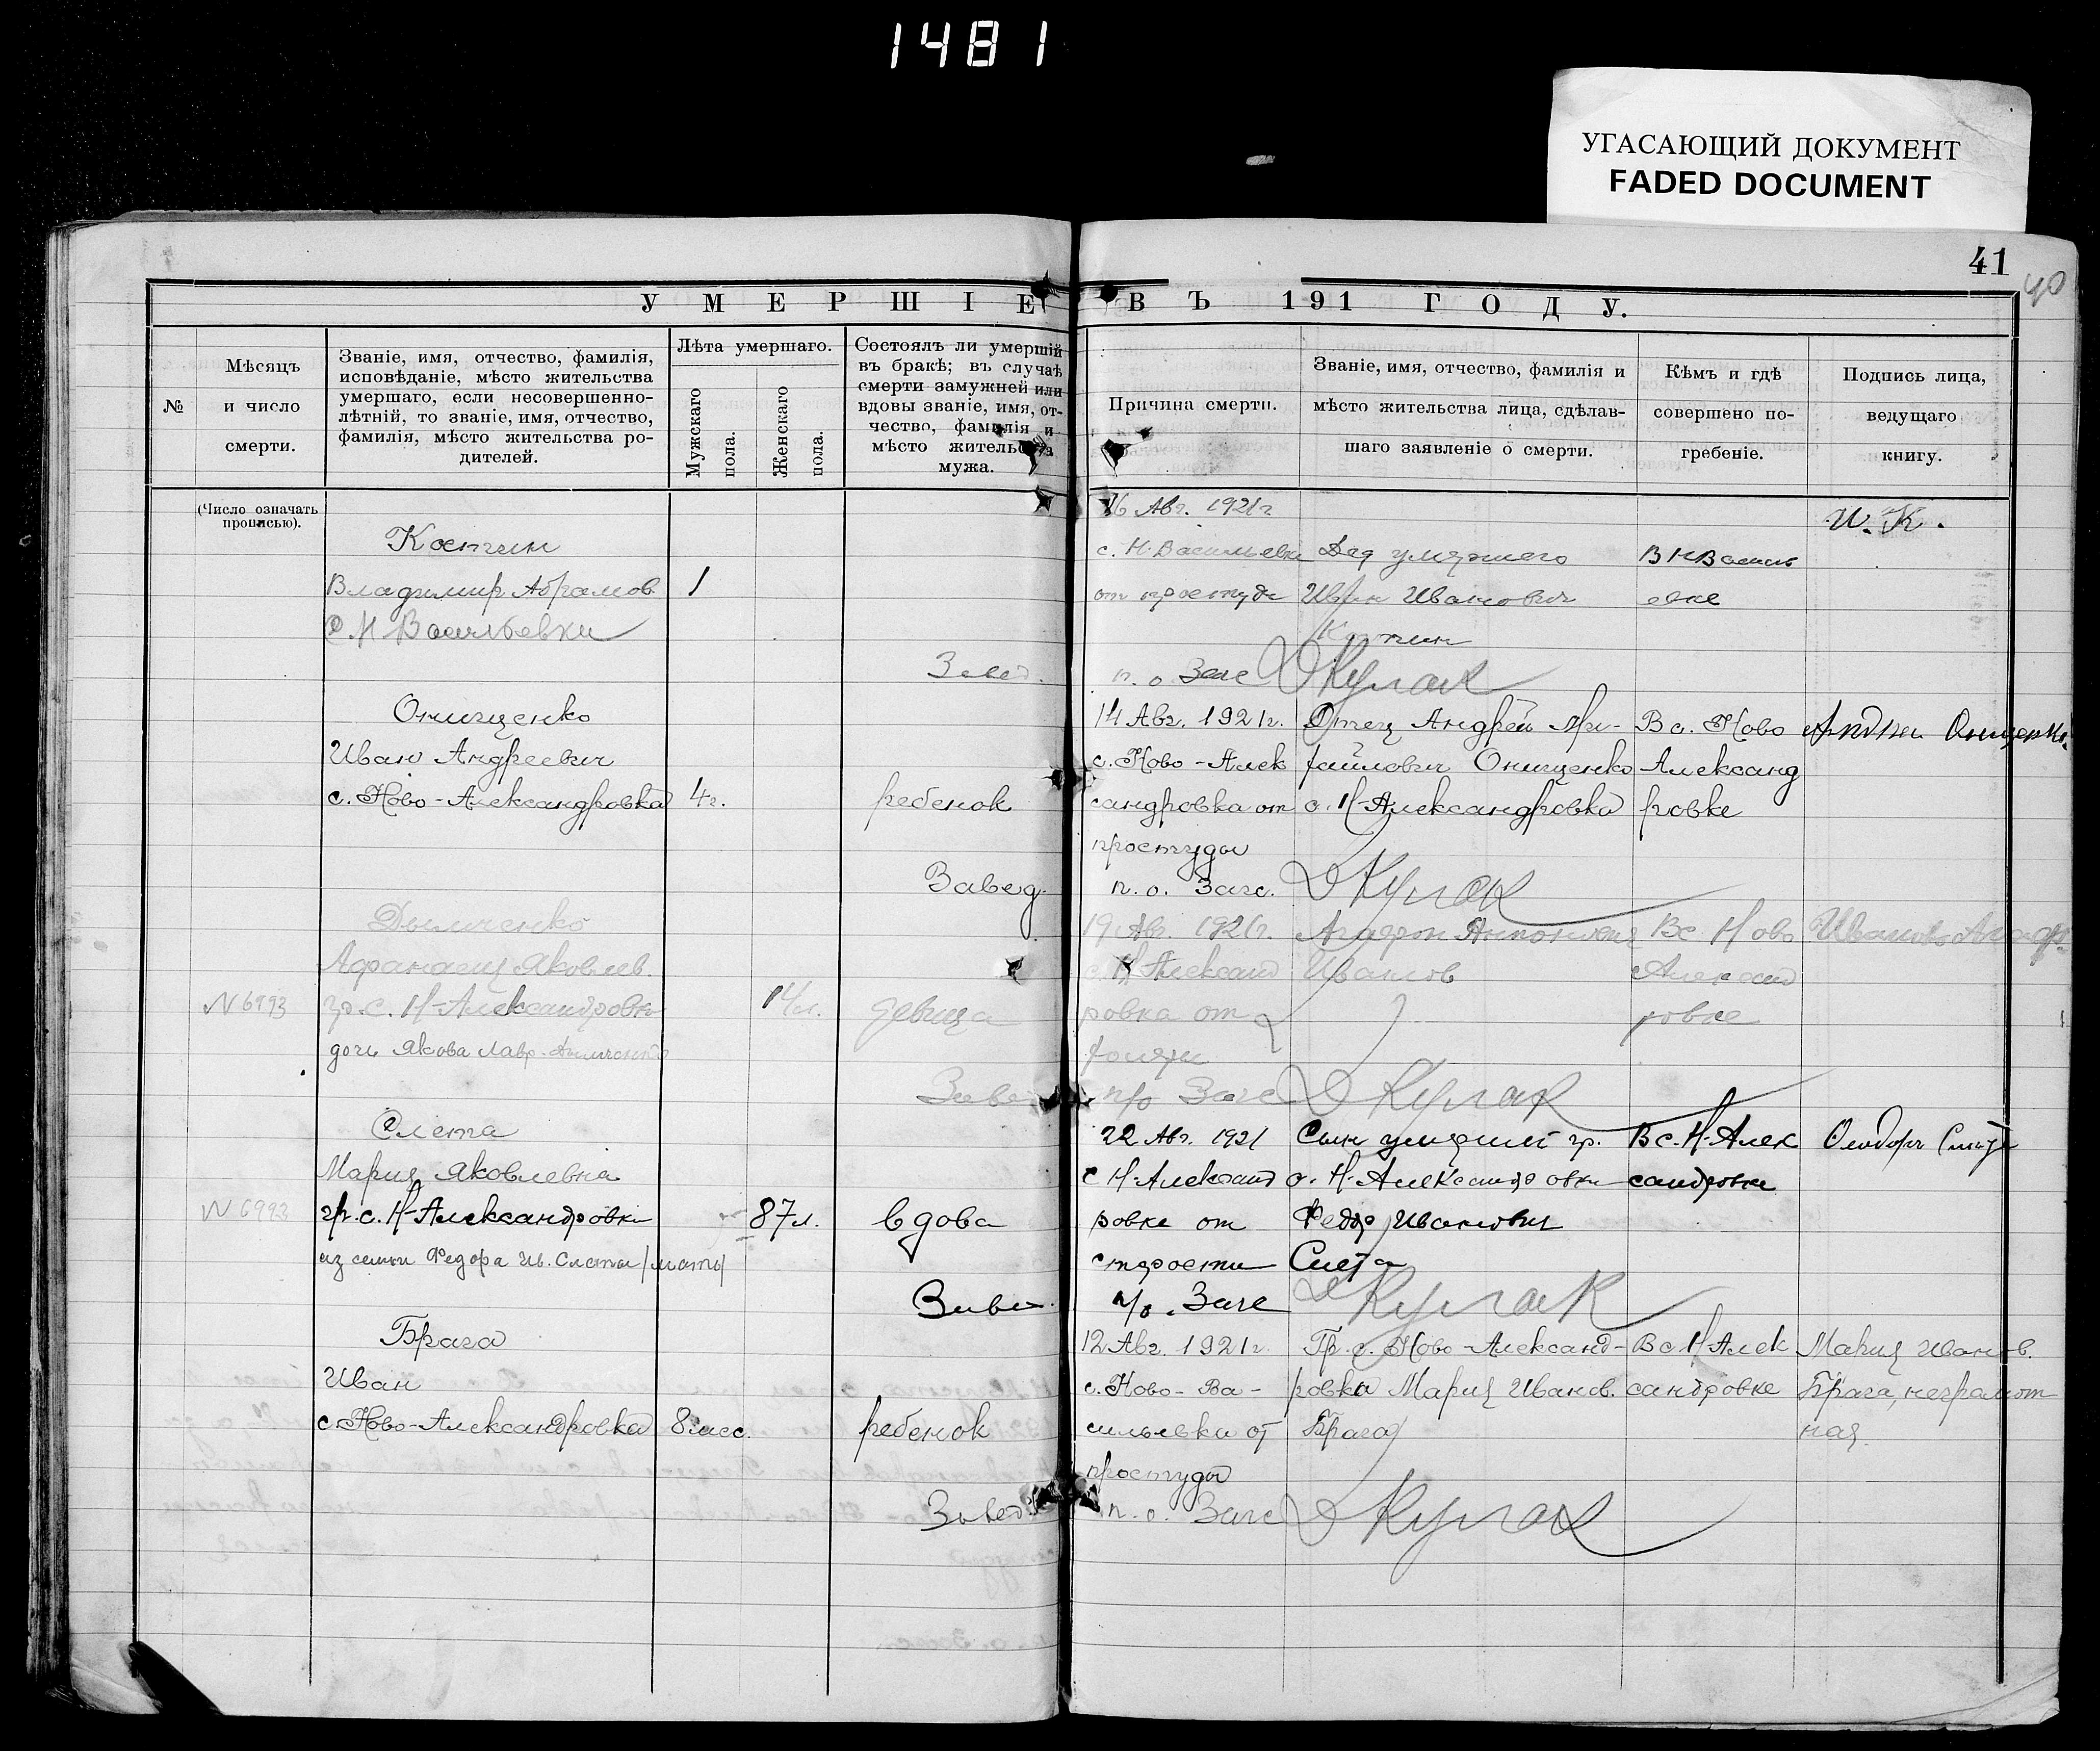 1481
УГАСАЮЩИЙ ДОКУМЕНТ
FADED DOCUMENT
41
40
УМЕРШІЕ ВЪ 191 ГОДУ.
№
Мѣсяцъ
и число
смерти.
Званіе, имя, отчество, фамилія,
исповѣданіе, мѣсто жительства
умершаго, если несовершенно-
лѣтній, то званіе, имя, отчество,
фамилія, мѣсто жительства ро-
дителей.
Лѣта умершаго.
Мужскаго
пола.
Женскаго
пола.
Состоялъ ли умершій
въ бракѣ; въ случаѣ
смерти замужней или
вдовы званіе, имя, от-
чество, фамилія и
мѣсто жительства
мужа.
Причина смерти.
Званіе, имя, отчество, фамилія и
мѣсто жительства лица, сдѣлав-
шаго заявленіе о смерти.
Кѣмъ и гдѣ
совершено по-
гребеніе.
Подпись лица,
ведущаго
книгу.
(Число означать
прописью).
Костин
Владимир Абрамов.
с Н Васильевки
1
16 Авг. 1921 г
с. Н. Васильевки
от простуды
Дед умершего
Иван Иванович
В Н Василь
евке
И. К.
п. о Загс
Кулак
Онищенко
Иван Андреевич
с. Ново-Александровка
4 г.
ребенок
14 Авг. 1921 г.
с. Ново-Алек
сандровка от
простуды
Отец Андрей Ми-
хайлович Онищенко
с. Н-Александровка
В с. Ново
Александ
ровке
Онищенко
Завед.
п. о. Загс.
Кулак
Дымченко
Яковлев.
№ 6993
гр. с. Н-Александровки
дочь Якова Лавр.
14 л.
девица
19 Авг. 1921 г.
с. Н Александ
ровка от
Иванов
В с. Ново
Александ
ровке
п/о Загс
Кулак
Слета
Мария Яковлевна
№ 6993
гр. с. Н-Александровки
из семьи Федора Ив. Слеты /мать/
87 л.
вдова
22 Авг. 1921
с Н-Александ
ровке от
старости
Сын умершей гр.
с. Н-Александровки
Федор Иванович
Слета
В с. Н-Алек
сандровке
п/о. Загс
Кулак
Брага
Иван
с. Ново-Александровка
8 мес.
ребенок
12 Авг. 1921 г.
с. Ново-Ва-
сильевка от
простуды
Гр. с. Ново-Александ-
ровка Мария Иванов.
Брага
В с. Н Алек
сандровке
Мария Иванов.
Брага, неграмот
ная
Завед.
п. о. Загс
Кулак